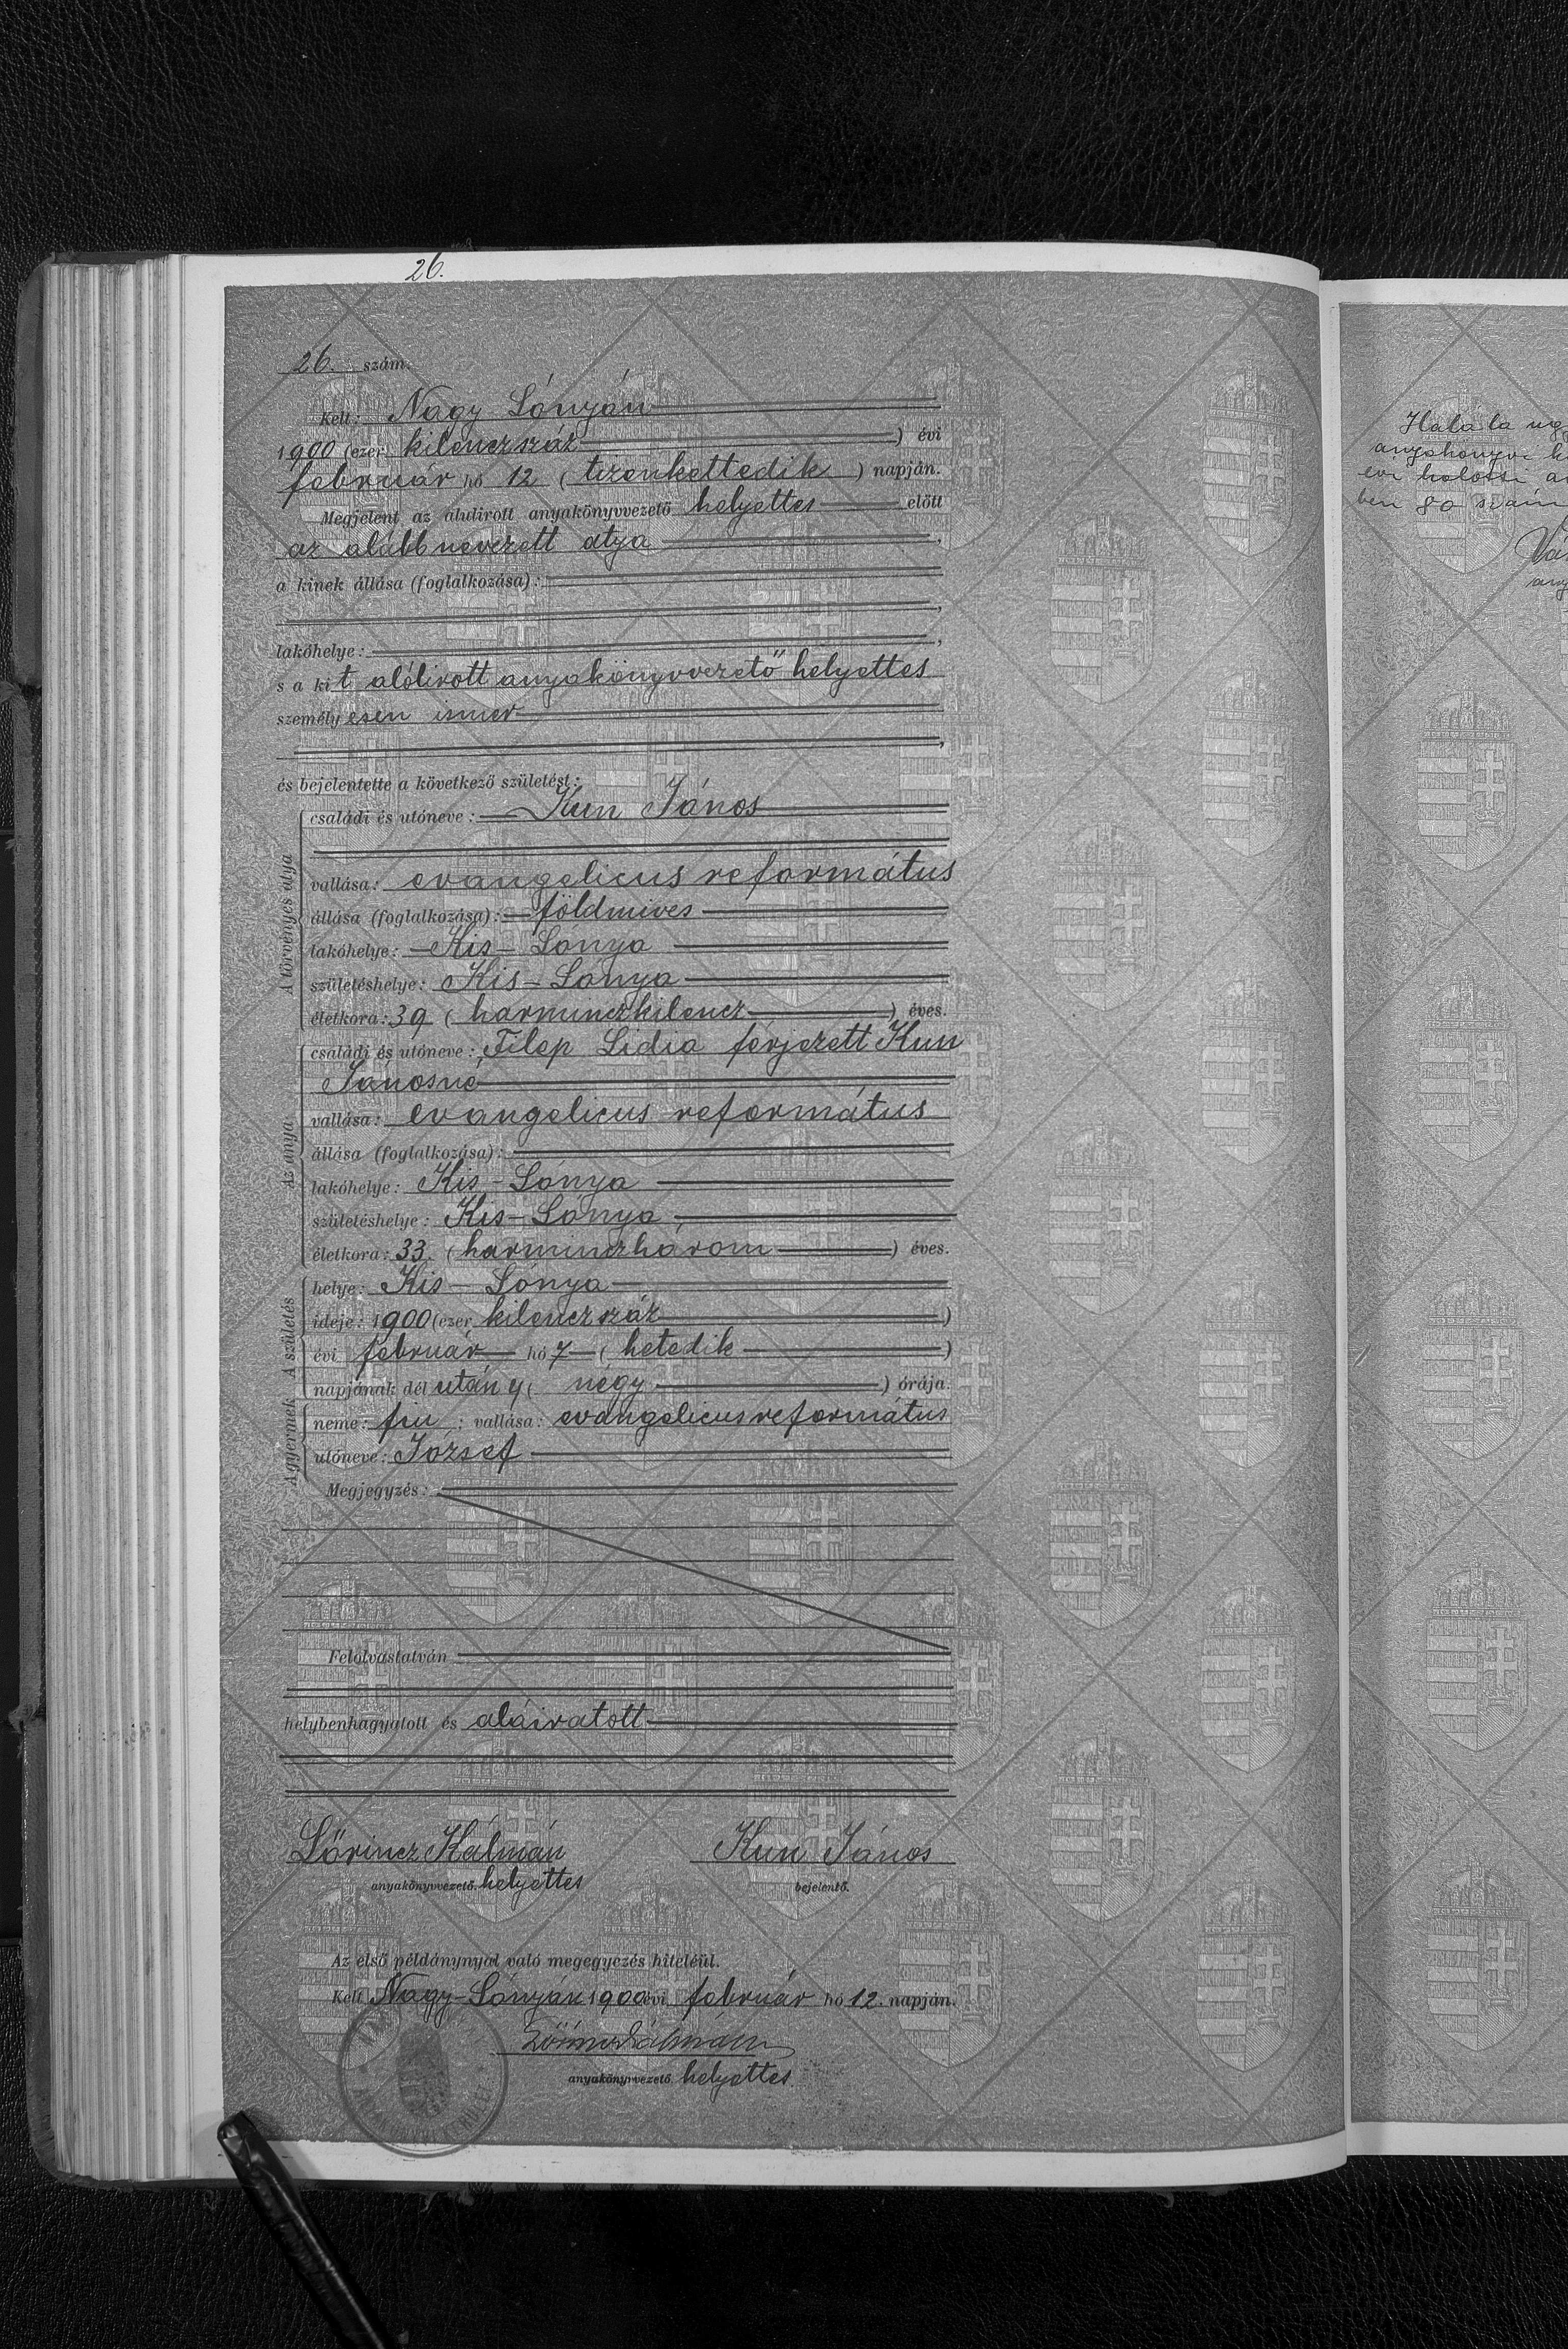 26.
26. szám.
Kelt: Nagy-Lónyán
1900 (ezer kilenczszáz) évi
február hó 12 (tizenkettedik) napján.
Megjelent az alulirott anyakönyvvezető helyettes előtt
az alább nevezett atya,
a kinek állása (foglalkozása):
,
lakóhelye: ,
s a kit alólirott anyakönyvvezető helyettes
személyesen ismer
,
és bejelentette a következő születést:
A törvényes atya
családi és utóneve: Kun János
vallása: evangelicus református
állása (foglalkozása): földmives
lakóhelye: Kis-Lónya
születéshelye: Kis-Lónya
életkora: 39 (harminczkilencz) éves.
Az anya
családi és utóneve: Filep Lidia férjezett Kun
Jánosné
vallása: evangelicus református
állása (foglalkozása):
lakóhelye: Kis-Lónya
születéshelye: Kis-Lónya,
életkora: 33. (harminczhárom) éves.
A születés
helye: Kis-Lónya
ideje: 1900 (ezer kilenczszáz)
évi február hó 7 (hetedik)
napjának dél után 4 (négy) órája.
A gyermek
neme: fiu; vallása: evangelicus református
utóneve: József
Megjegyzés:
Felolvastatván
helybenhagyatott és aláiratott
Lőrincz Kálmán Kun János
anyakönyvvezető. helyettes bejelentő.
Az első példánynyal való megegyezés hiteléül.
Kelt Nagy-Lónyán 1900 évi február hó 12. napján.
Lőrincz Kálmán
anyakönyvvezető helyettes.
Halála
anyakönyvi
évi halotti
ben 80 szám